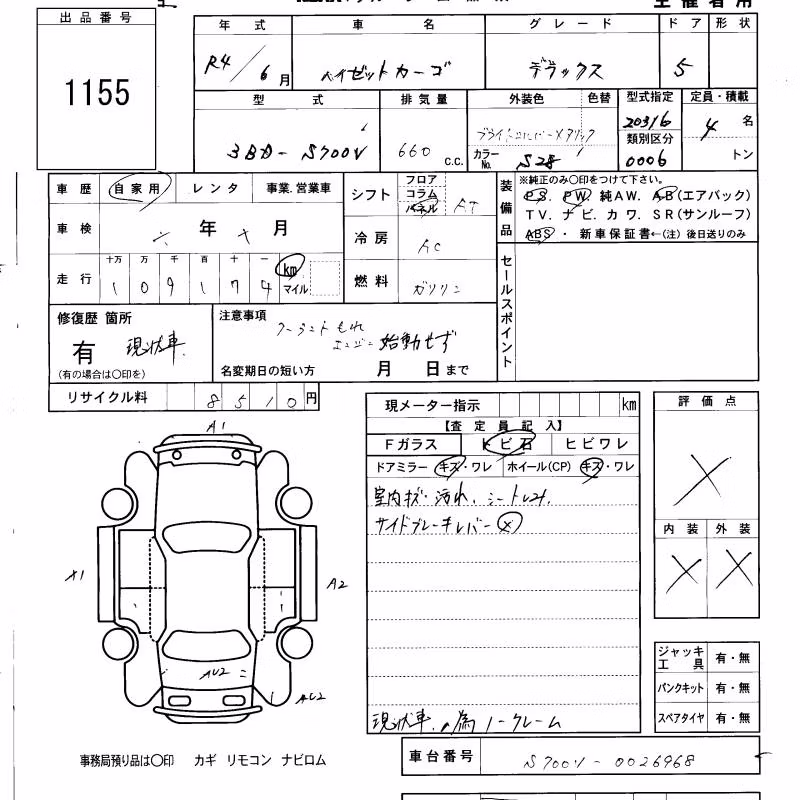 出品番号
1155
年式 車名 グレード ドア 形状
R4/6月 ハイゼットカーゴ デラックス 5
型式 排気量 外装色 色替 型式指定 定員・積載
3BD-S700V 660 c.c. ブライトシルバーメタリック 20316 4名
カラーNo. S28 類別区分 0006 トン
車歴 自家用 レンタ 事業.営業車
シフト フロア コラム パネル AT
車検 六年十月
冷房 AC
走行 十万 万 千 百 十 一 km マイル
109174
燃料 ガソリン
装備品
※純正のみ○印をつけて下さい。
PS. PW. 純AW. AB(エアバック)
TV. ナビ. カワ. SR(サンルーフ)
ABS・ 新車保証書←(注) 後日送りのみ
セールスポイント
修復歴 箇所
有 現状車.
(有の場合は○印を)
注意事項
クーラントもれ
エンジン始動せず
名変期日の短い方 月 日まで
リサイクル料 8510円
現メーター指示 km
【査定員記入】
Fガラス トビ石 ヒビワレ
ドアミラー キズ・ワレ ホイール(CP) キズ・ワレ
室内キズ・汚れ. シートレスレ.
サイドブレーキレバー×
現状車.の為ノークレーム
評価点
×
内装 外装
× ×
A1
X1
A2
AU2
AU2
ジャッキ工具 有・無
パンクキット 有・無
スペアタイヤ 有・無
事務局預り品は○印 カギ リモコン ナビロム
車台番号 S700V-0026968